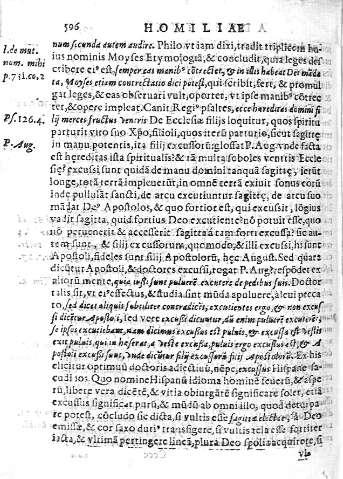 506 HOMILIAE
I. de mut. nom. mihi p.731.co.2
Ps.126.4.
P. Aug.
num secunda autem audire. Philo vt iam dixi, tradit triplicem hu
ius nominis Moyses Etymologiã; & concludit, quia leges des
cribere ei' est, semper eas manib' cõtrectet, & in illis habeat Dei mãda
ta, Moyses etiam contrectatio dici potest, qui scribit, fert, & promul
gat leges, & eas obseruari vult, oportet, vt ipse manib' cõtrec
tet, & opere impleat. Canit Regi' psaltes, ecce hereditas domini fi
lij merces fructus ventris De Ecclesiæ filijs loquitur, quos spiritu
parturit viro suo Xpo, filioli, quos iterũ parturio, sicut sagitę
in manu potentis, ita filij excussorũ; glossat P. Aug. vnde facta
est hereditas ista spiritualis? & tã multa soboles ventris Eccle
się? excussi sunt quidã de manu domini tanquã sagitę, ierũt
longe, totã terrã impleuerũt, in omnẽ terrã exiuit sonus eorũ
inde pullulãt sancti, de arcu excutiuntur sagitę, de arcu suo
mãdat De' Apostolos, & quo fortior est, qui excussit, lõgius
vadit sagitta, quid fortius Deo excutiente?
peruenerit, & accesserit sagitta à tam forti excussa? sic au
tem sunt, & filij excussorum, quomodo, & illi excussi, hi sunt
Apostoli, fideles sunt filij Apostolorũ, hęc August. Sed quare
dicũtur Apostoli, & doctores excussi, rogat P. Aug? respõdet ex
aliorũ mente, quia iusti sunt puluerẽ excutere de pedibus suis. Doctor
talis sit, vt ei' effectus, & studia sint mũda à puluere, à lei pecca
to, sed dices aliquis subtiliter contradicens, excutientes ergo, & non excus
si dicũtur Apostoli, sed vere excussi dicũtur,
se ipsos excutiebant, nam dicimus excussus est puluis, & excussa est vestis
exit puluis, qui inhæserat, à veste excussa, puluis ergo excussus est, & A
postoli excussi sunt, vnde dicũtur filij excussorũ filij Apostolorũ. Ex his
elicitur optimuũ doctoris adiectiuũ, nẽpe, excussus Hispane sa
cudidos. Quo nomine Hispanũ idioma hominẽ feuerũ, & aspe
rũ, libere vera dicẽtẽ, & vitia obiurgãtẽ significare solet, etiã
excussus significat purũ, & mũdũ ab omni illo, quod deturpa
re potest, cõcludo sic dicta, si vultis esse sagitæ electæ, à Deo
emissæ, & cor saxo duri' transigere, si vultis tela esse fortiter
iacta, & vltimã pertingere lineã, plura Deo spolia acquirere, si
vis